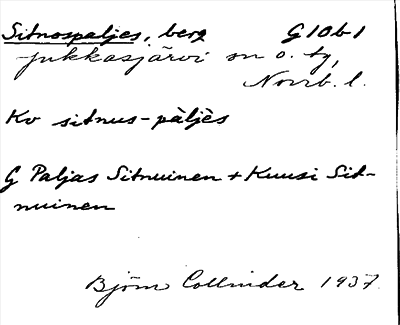 Sitnospaljes, berg G10b1
Jukkasjärvi sn o. tg,
Norrb. l.
Kv sitnus-pàljès
G Paljas Sitnuinen + Kuusi Sit-
nuinen
Björn Collinder 1937.